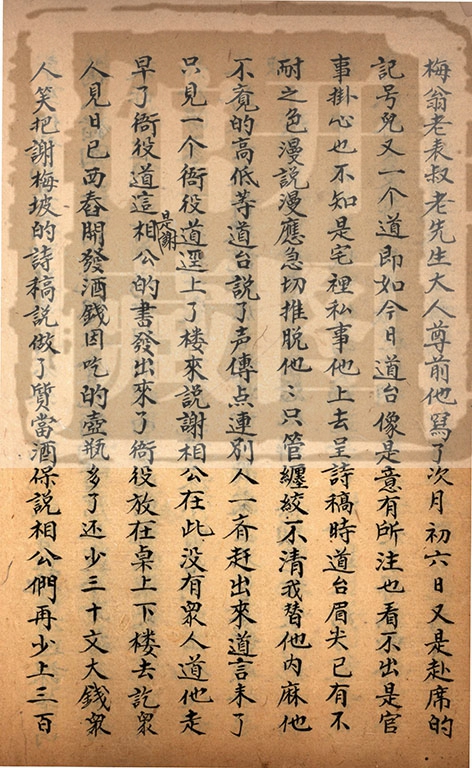 梅翁老表叔老先生大人尊前他寫了次月初六日又是赴席的
記号兒又一个道即如今日道台像是意有所注也看不出是官
事掛心也不知是宅裡私事他上去呈詩稿時道台眉尖已有不
耐之色漫說漫應急切推脫他〻只管纏絞不清我替他內麻他
不覔的高低等道台說了声傳点連別人一斉赶出來道言未了
只見一个衙役道選上了楼來說謝相公在此没有衆人道他走
早了衙役道這是謝相公的書發出來了衙役放在桌上下楼去訖衆
人見日已西舂開發酒錢因吃的壺瓶多了还少三十文大錢衆
人笑把謝梅坡的詩稿說做了質當酒保說相公們再少上三百